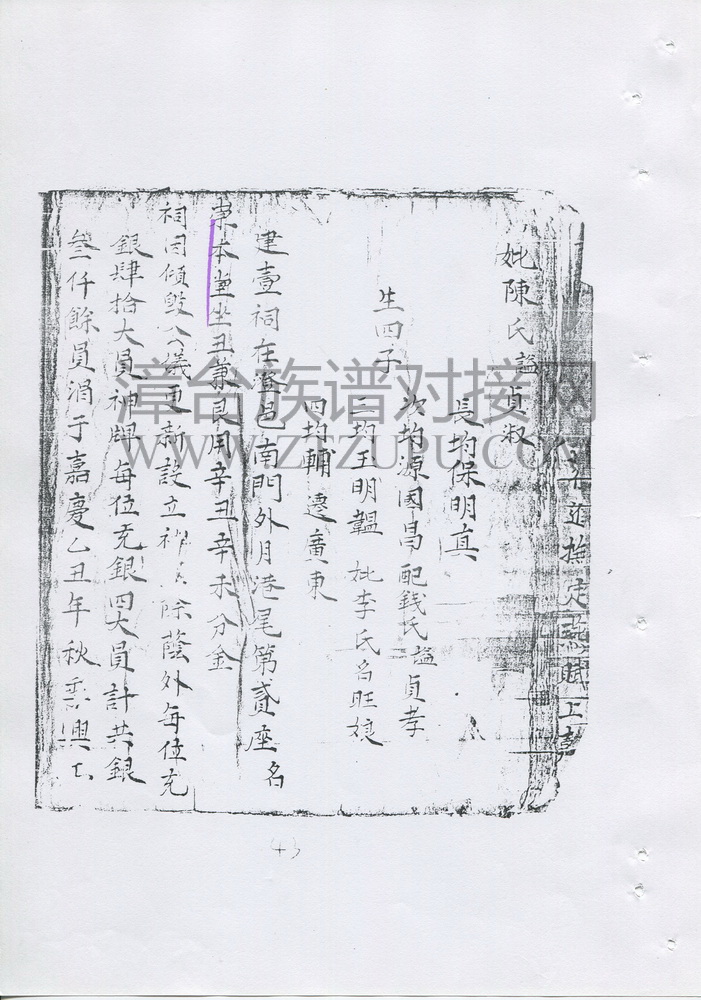 撫定
賦上
妣陳氏謚貞淑
長均保明真
生四子
次均源國昌配錢氏謚貞孝
三均玉明韞妣李氏名旺娘
四均輔遷廣東
建壹祠在澄邑南門外月港尾第貳座名
本堂坐丑兼艮用辛丑辛未分金
祠因傾毀公議更新設立神 除蔭外每位充
銀肆拾大員神牌每位充銀四大員計共銀
叁仟餘員涓于嘉慶乙丑年秋季興工
漳台族谱对接网
WWW.ZTZUPU.COM
43